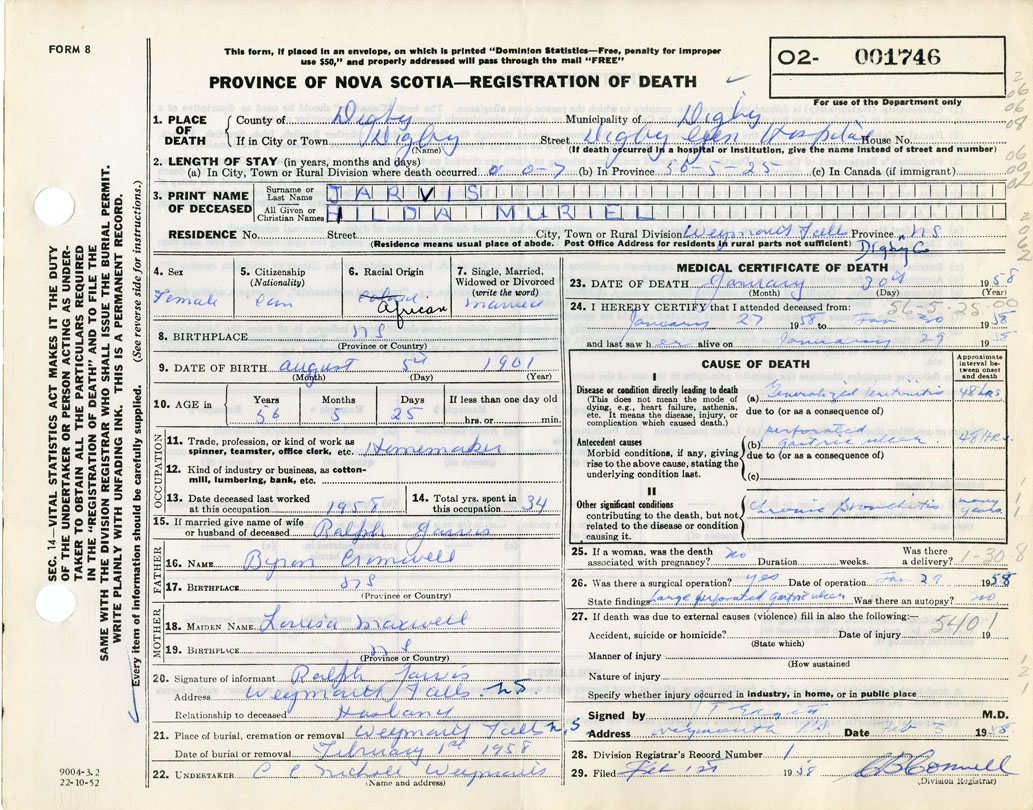 FORM 8
This form, if placed in an envelope, on which is printed "Dominion Statistics—Free, penalty for improper
use $50," and properly addressed will pass through the mail "FREE"
PROVINCE OF NOVA SCOTIA—REGISTRATION OF DEATH
O2- 001746
For use of the Department only
1. PLACE OF DEATH
County of Digby Municipality of Digby
If in City or Town Digby Street Digby Gen Hospital House No.
(Name) (If death occurred in a hospital or institution, give the name instead of street and number)
2. LENGTH OF STAY (in years, months and days)
(a) In City, Town or Rural Division where death occurred 0 0-7 (b) In Province 56-5-25 (c) In Canada (if immigrant)
3. PRINT NAME OF DECEASED
Surname or Last Name JARVIS
All Given or Christian Names HILDA MURIEL
RESIDENCE No. Street City, Town or Rural Division Weymouth Falls Province NS
(Residence means usual place of abode. Post Office Address for residents in rural parts not sufficient) Digby Co
4. Sex
Female
5. Citizenship
(Nationality)
Can
6. Racial Origin
African
7. Single, Married,
Widowed or Divorced
(write the word)
Married
8. BIRTHPLACE NS
(Province or Country)
9. DATE OF BIRTH August 5th 1901
(Month) (Day) (Year)
10. AGE in
Years Months Days If less than one day old
56 5 25 hrs. or min.
OCCUPATION
11. Trade, profession, or kind of work as
spinner, teamster, office clerk, etc. Homemaker
12. Kind of industry or business, as cotton-
mill, lumbering, bank, etc.
13. Date deceased last worked
at this occupation 1958
14. Total yrs. spent in
this occupation 34
15. If married give name of wife
or husband of deceased Ralph Jarvis
FATHER
16. NAME Byron Cromwell
17. BIRTHPLACE NS
(Province or Country)
MOTHER
18. MAIDEN NAME Louisa Maxwell
19. BIRTHPLACE NS
(Province or Country)
20. Signature of informant Ralph Jarvis
Address Weymouth Falls NS
Relationship to deceased Husband
21. Place of burial, cremation or removal Weymouth Falls N.S
Date of burial or removal February 1st 1958
22. UNDERTAKER Weymouth
(Name and address)
MEDICAL CERTIFICATE OF DEATH
23. DATE OF DEATH January 30th 1958
(Month) (Day) (Year)
24. I HEREBY CERTIFY that I attended deceased from: 56-5-25.00
January 27 1958 to Jan 30 1958
and last saw her alive on January 29 1958
CAUSE OF DEATH
Approximate
interval be-
tween onset
and death
I
Disease or condition directly leading to death
(This does not mean the mode of
dying, e.g., heart failure, asthenia,
etc. It means the disease, injury, or
complication which caused death.)
(a) Generalized Peritonitis 48 hrs
due to (or as a consequence of)
Antecedent causes
Morbid conditions, if any, giving
rise to the above cause, stating the
underlying condition last.
perforated
(b) gastric ulcer 48 Hrs.
due to (or as a consequence of)
(c)
II
Other significant conditions
contributing to the death, but not
related to the disease or condition
causing it.
Chronic Bronchitis many years
25. If a woman, was the death
associated with pregnancy? no Duration weeks. Was there
a delivery?
1-30-8
26. Was there a surgical operation? yes Date of operation Jan 29 1958
State findings Large perforated gastric ulcer Was there an autopsy? no
27. If death was due to external causes (violence) fill in also the following:—
5401
Accident, suicide or homicide? Date of injury 19
(State which)
Manner of injury
(How sustained
Nature of injury
Specify whether injury occurred in industry, in home, or in public place
Signed by M.D.
Address Weymouth NS Date Feb 5 1958
28. Division Registrar's Record Number 1
29. Filed Feb 1st 1958
(Division Registrar)
SEC. 14—VITAL STATISTICS ACT MAKES IT THE DUTY
OF THE UNDERTAKER OR PERSON ACTING AS UNDER-
TAKER TO OBTAIN ALL THE PARTICULARS REQUIRED
IN THE "REGISTRATION OF DEATH" AND TO FILE THE
SAME WITH THE DIVISION REGISTRAR WHO SHALL ISSUE THE BURIAL PERMIT.
WRITE PLAINLY WITH UNFADING INK. THIS IS A PERMANENT RECORD.
Every item of information should be carefully supplied. (See reverse side for instructions.)
9004-3.2
22-10-52